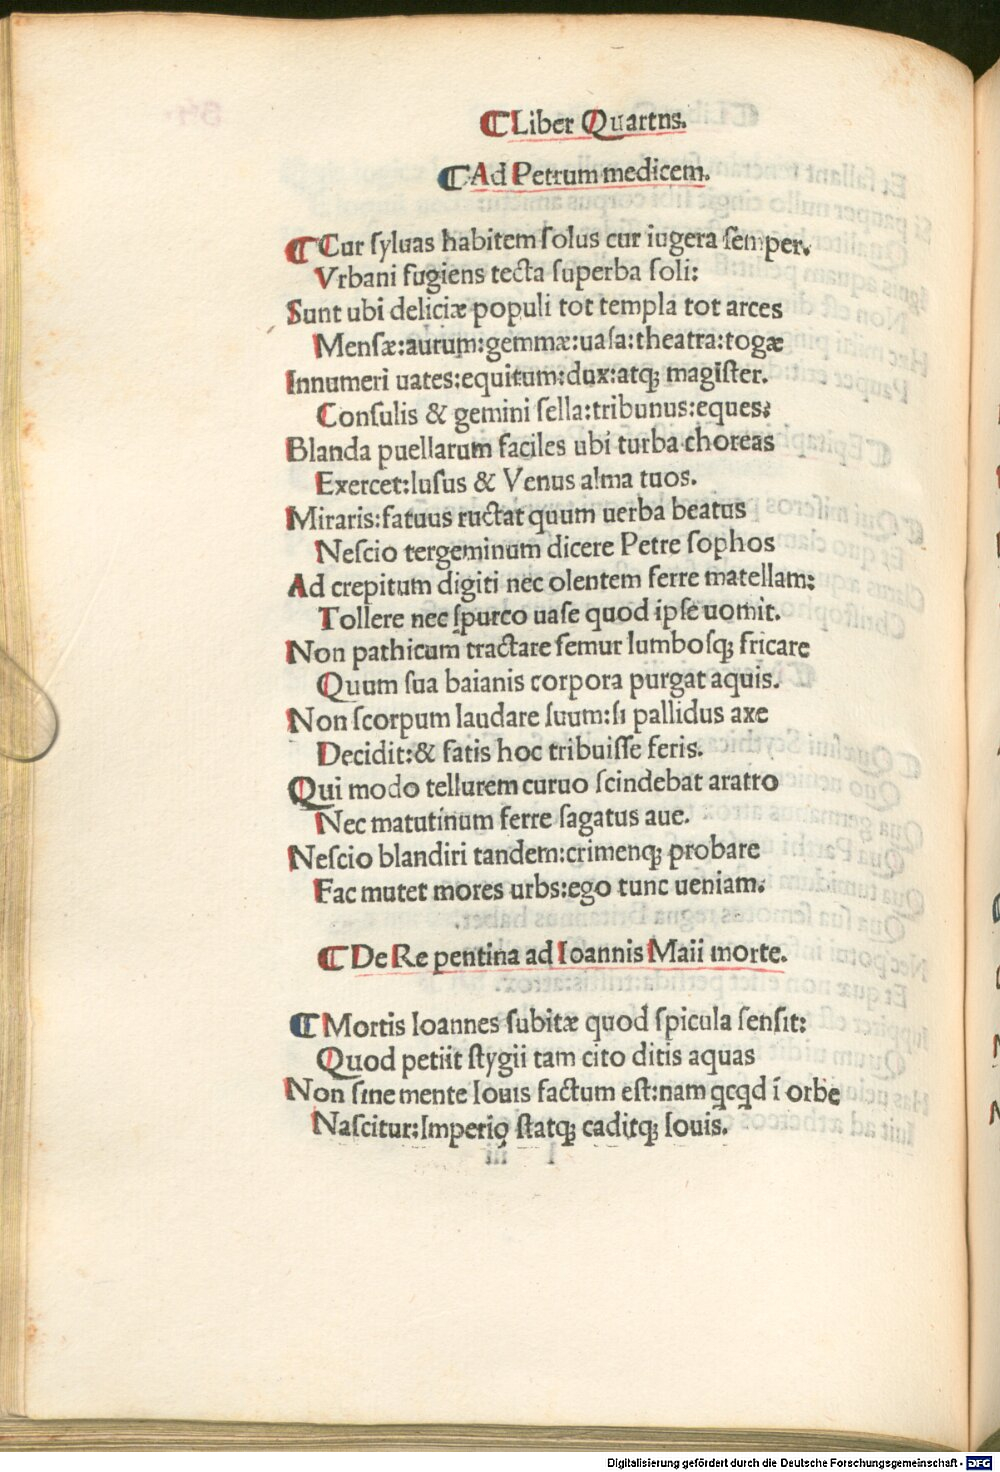 ¶Liber Quartns.
¶Ad Petrum medicem.
¶Cur ſyluas habitem ſolus cur iugera ſemper.
Vrbani fugiens tecta ſuperba ſoli:
Sunt ubi deliciæ populi tot templa tot arces
Menſæ:aurum:gemmæ:uaſa:theatra:togæ
Innumeri uates:equitum:dux:atq; magiſter.
Conſulis & gemini ſella:tribunus:eques:
Blanda puellarum faciles ubi turba choreas
Exercet:luſus & Venus alma tuos.
Miraris:fatuus ructat quum uerba beatus
Neſcio tergeminum dicere Petre ſophos
Ad crepitum digiti nec olentem ferre matellam:
Tollere nec ſpurco uaſe quod ipſe uomit.
Non pathicum tractare femur lumboſq; fricare
Quum ſua baianis corpora purgat aquis.
Non ſcorpum laudare ſuum:ſi pallidus axe
Decidit:& fatis hoc tribuiſſe feris.
Qui modo tellurem curuo ſcindebat aratro
Nec matutinum ferre ſagatus aue.
Neſcio blandiri tandem:crimenq; probare
Fac mutet mores urbs:ego tunc ueniam.
¶De Re pentina ad Ioannis Maii morte.
¶Mortis Ioannes ſubitæ quod ſpicula ſenſit:
Quod petiit ſtygii tam cito ditis aquas
Non ſine mente Iouis factum eſt:nam qcqd ī orbe
Naſcitur:Imperio ſtatq; caditq; Iouis.
Digitalisierung gefördert durch die Deutsche Forschungsgemeinschaft - DFG